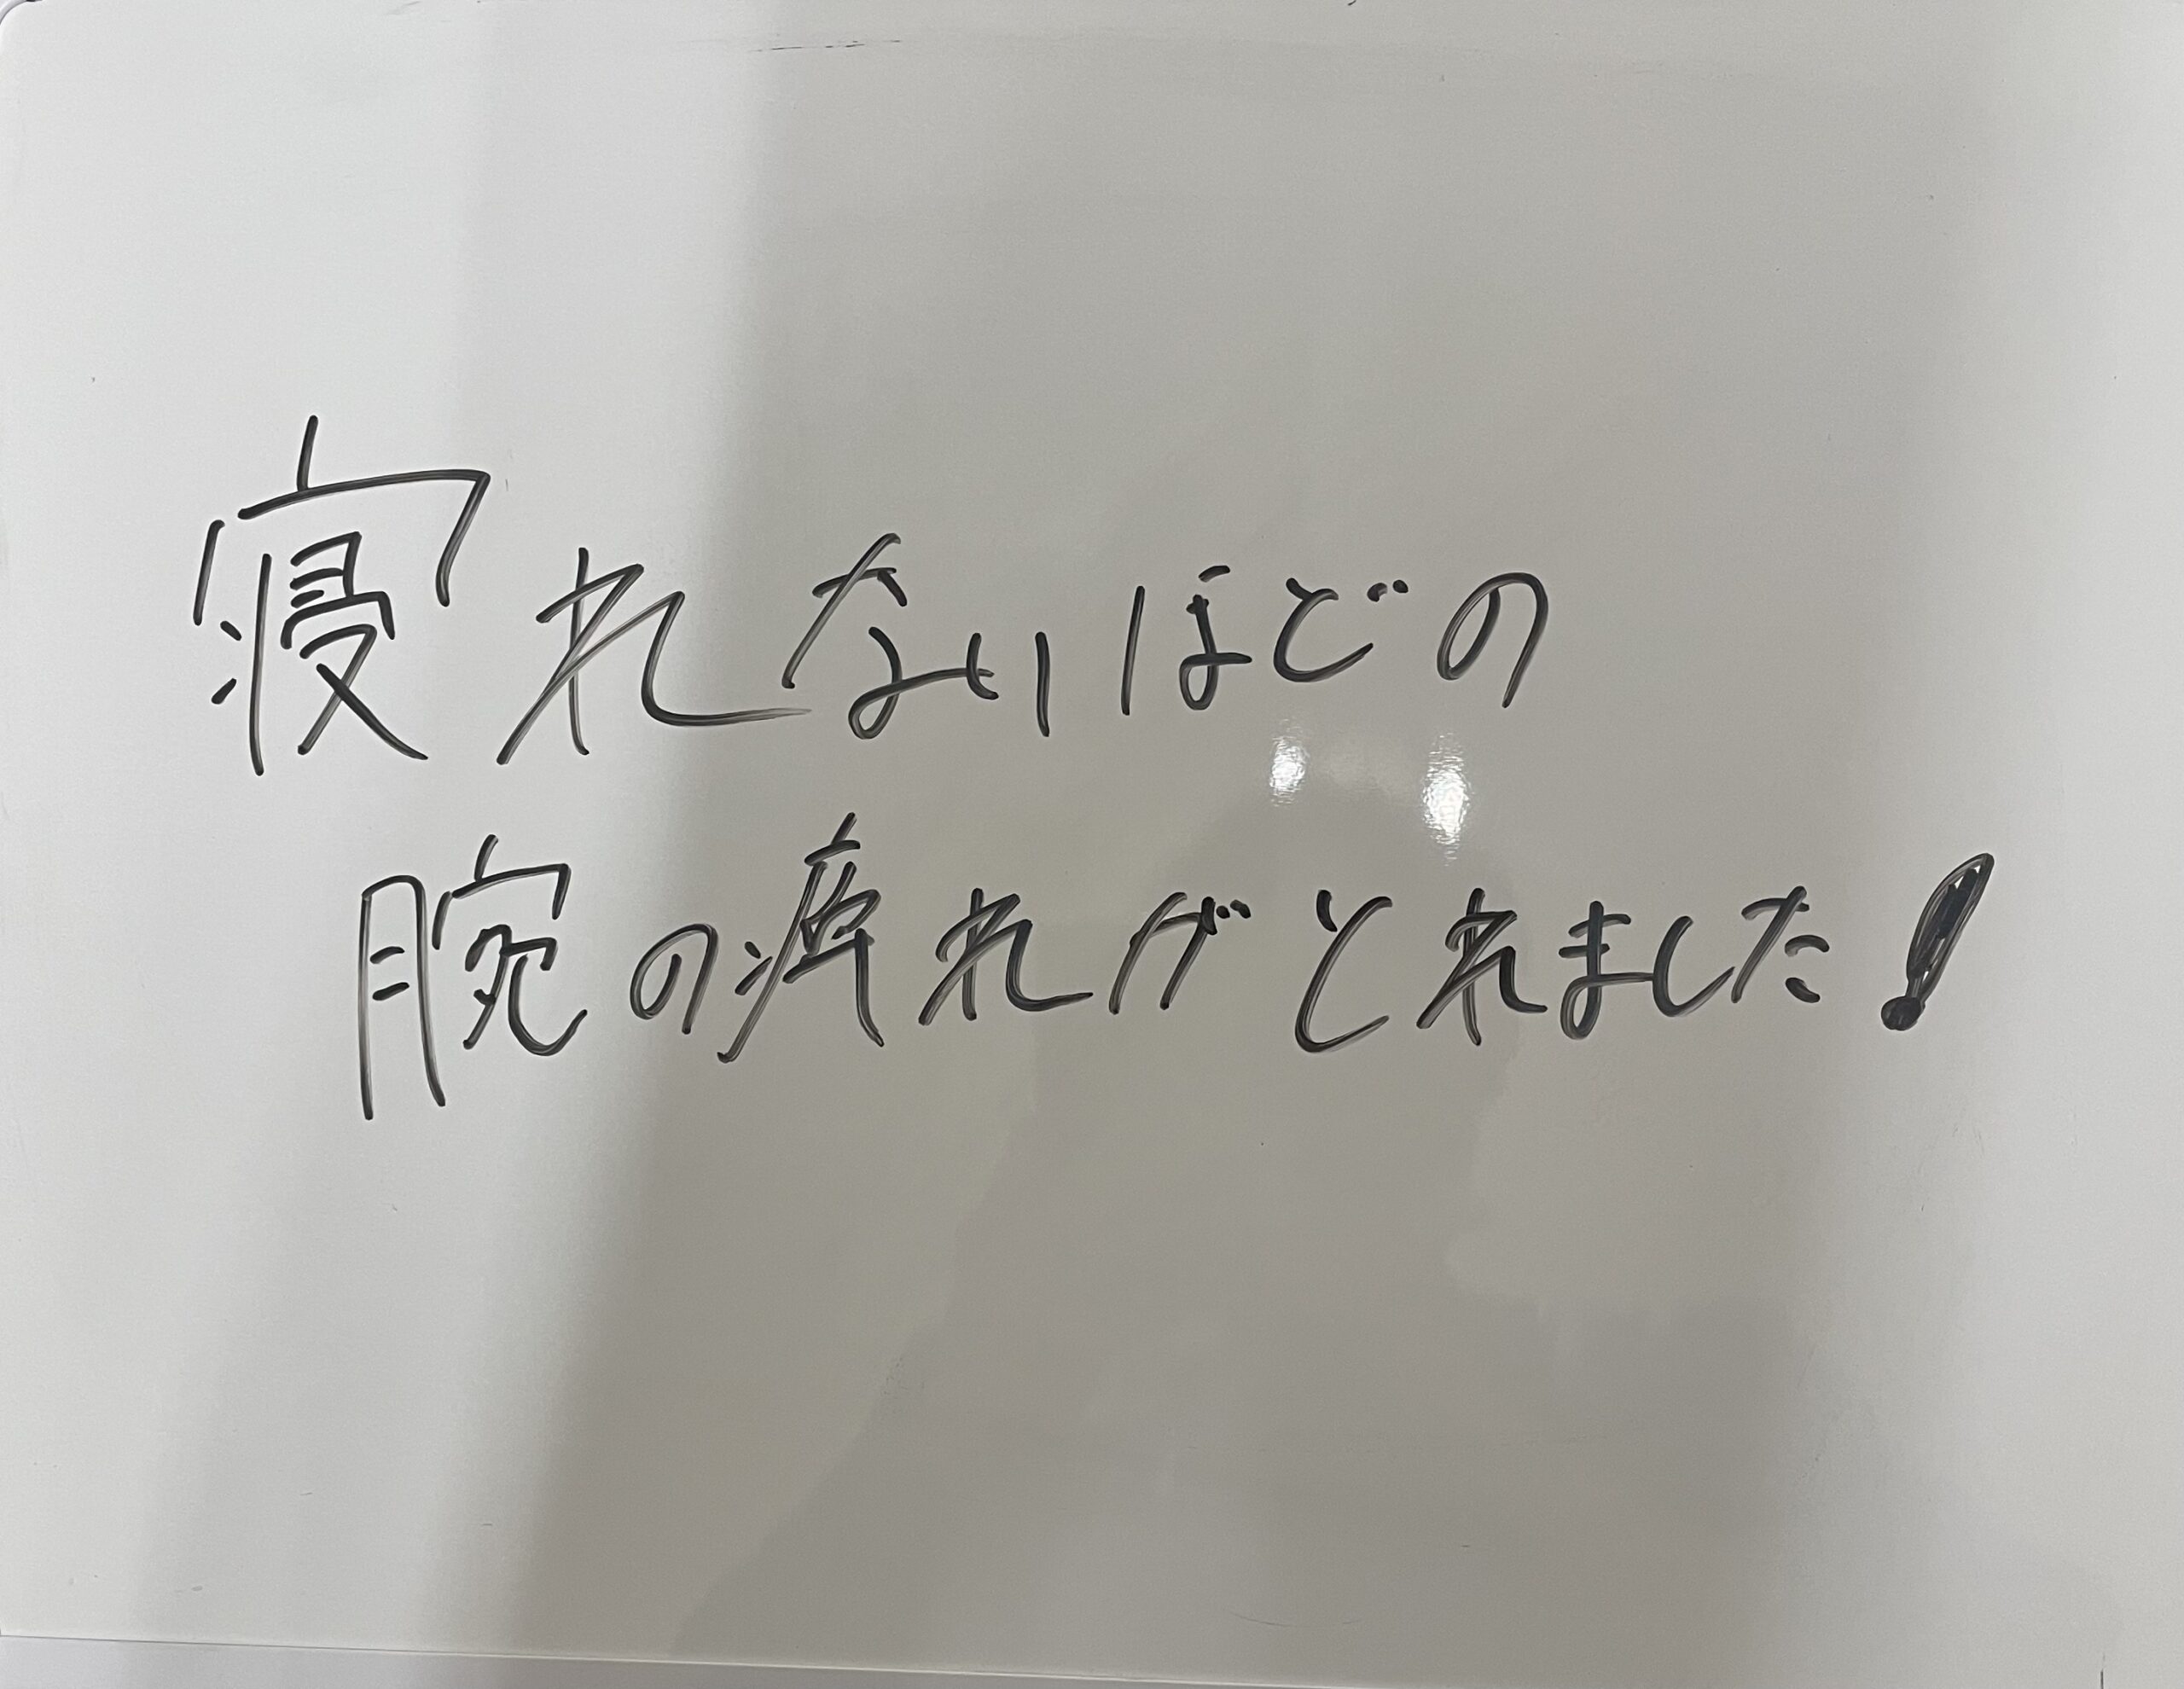 寝れないほどの
腕の疲れがとれました!